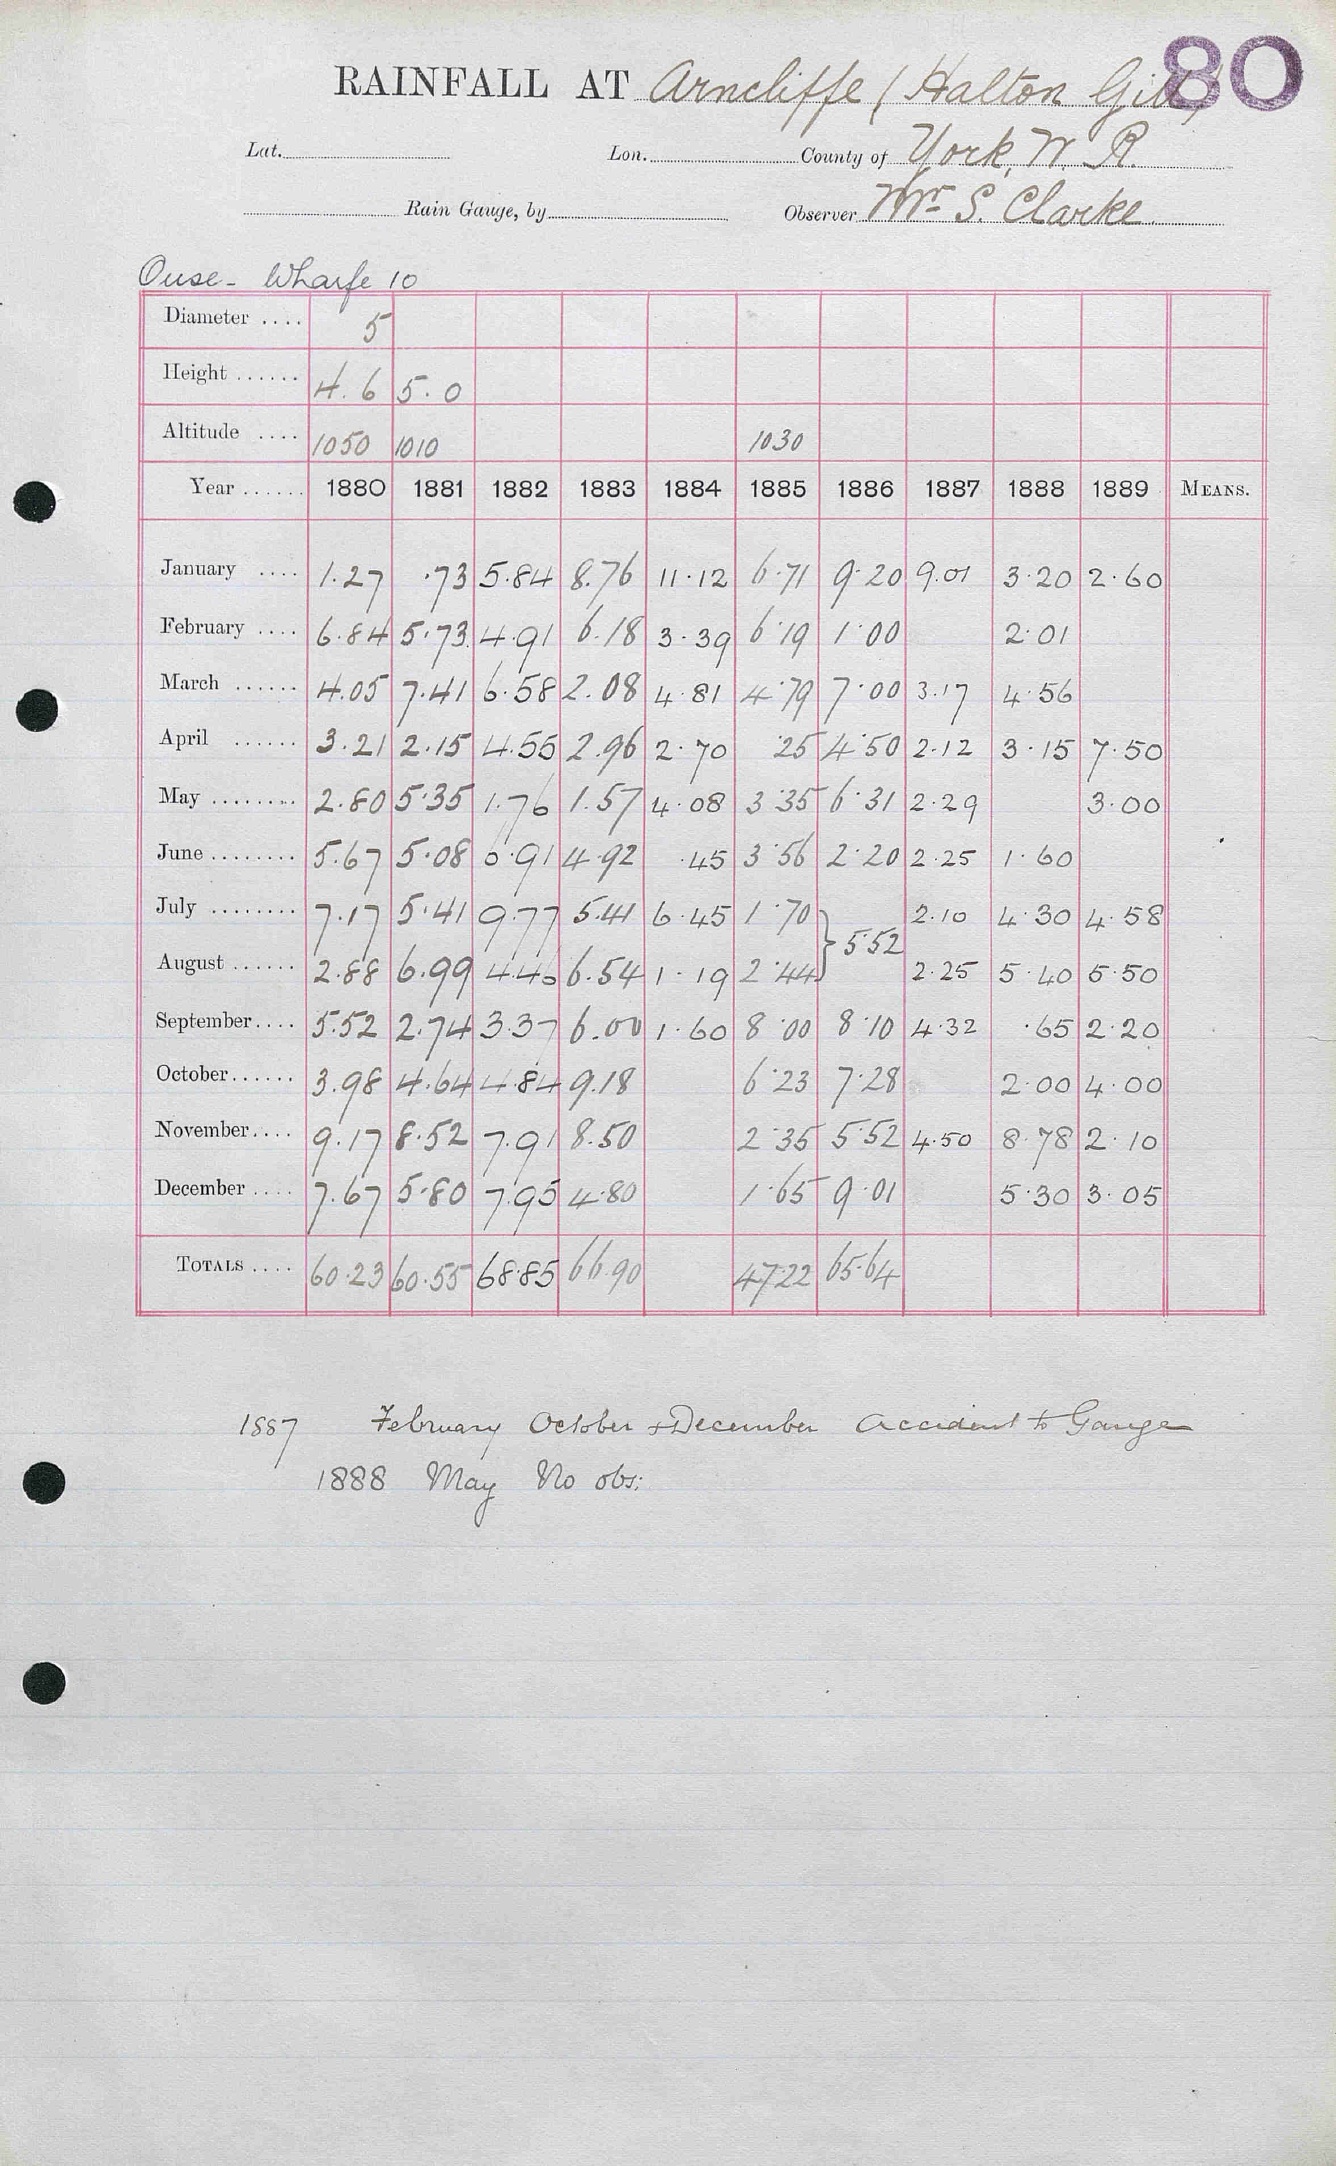 80
RAINFALL AT Arncliffe (Halton Gill)
Lat. Lon. County of York, W. R.
Rain Gauge, by Observer Mr S. Clarke
Ouse - Wharfe 10
Diameter .... 5
Height ...... 4.6 5.0
Altitude .... 1050 1010 1030
Year ...... 1880 1881 1882 1883 1884 1885 1886 1887 1888 1889 MEANS.
January .... 1.27 .73 5.84 8.76 11.12 6.71 9.20 9.01 3.20 2.60
February .... 6.84 5.73 4.91 6.18 3.39 6.19 1.00 2.01
March ...... 4.05 7.41 6.58 2.08 4.81 4.79 7.00 3.17 4.56
April ...... 3.21 2.15 4.55 2.96 2.70 .25 4.50 2.12 3.15 7.50
May ........ 2.80 5.35 1.76 1.57 4.08 3.35 6.31 2.29 3.00
June ........ 5.67 5.08 6.91 4.92 .45 3.56 2.20 2.25 1.60
July ........ 7.17 5.41 9.77 5.41 6.45 1.70 } 5.52 2.10 4.30 4.58
August ...... 2.88 6.99 4.46 6.54 1.19 2.44 2.25 5.40 5.50
September.... 5.52 2.74 3.37 6.00 1.60 8.00 8.10 4.32 .65 2.20
October...... 3.98 4.64 4.84 9.18 6.23 7.28 2.00 4.00
November.... 9.17 8.52 7.91 8.50 2.35 5.52 4.50 8.78 2.10
December .... 7.67 5.80 7.95 4.80 1.65 9.01 5.30 3.05
TOTALS .... 60.23 60.55 68.85 66.90 47.22 65.64
1887 February October & December Accident to Gauge
1888 May No obs: